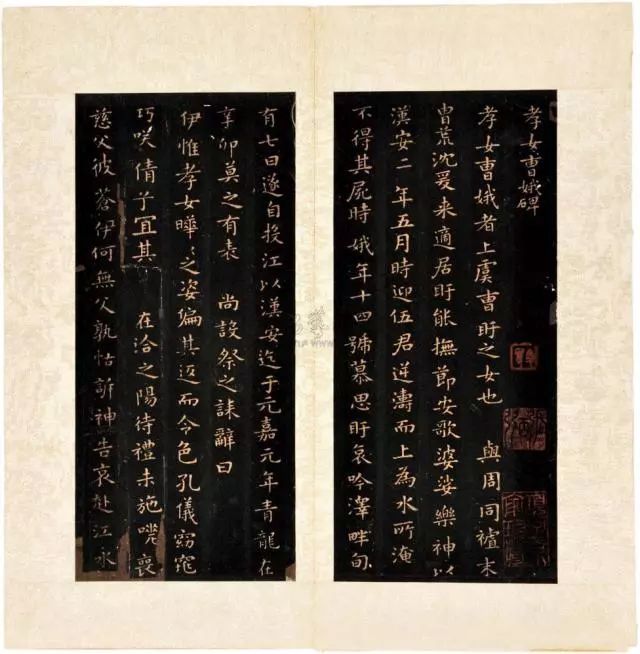 孝女曹娥碑
孝女曹娥者上虞曹盱之女也 與周同祖末
冑荒沈爰来適居盱能撫節安歌婆娑樂神以
漢安二年五月時迎伍君逆濤而上為水所淹
不得其屍時娥年十四號慕思盱哀吟澤畔旬
有七日遂自投江以漢安迄于元嘉元年青龍在
辛卯莫之有表 尚設祭之誄辭曰
伊惟孝女曄〻之姿偏其返而令色孔儀窈窕
巧咲倩予宜其 在洽之陽待禮未施嗟喪
慈父彼蒼伊何無父孰怙訴神告哀赴江永